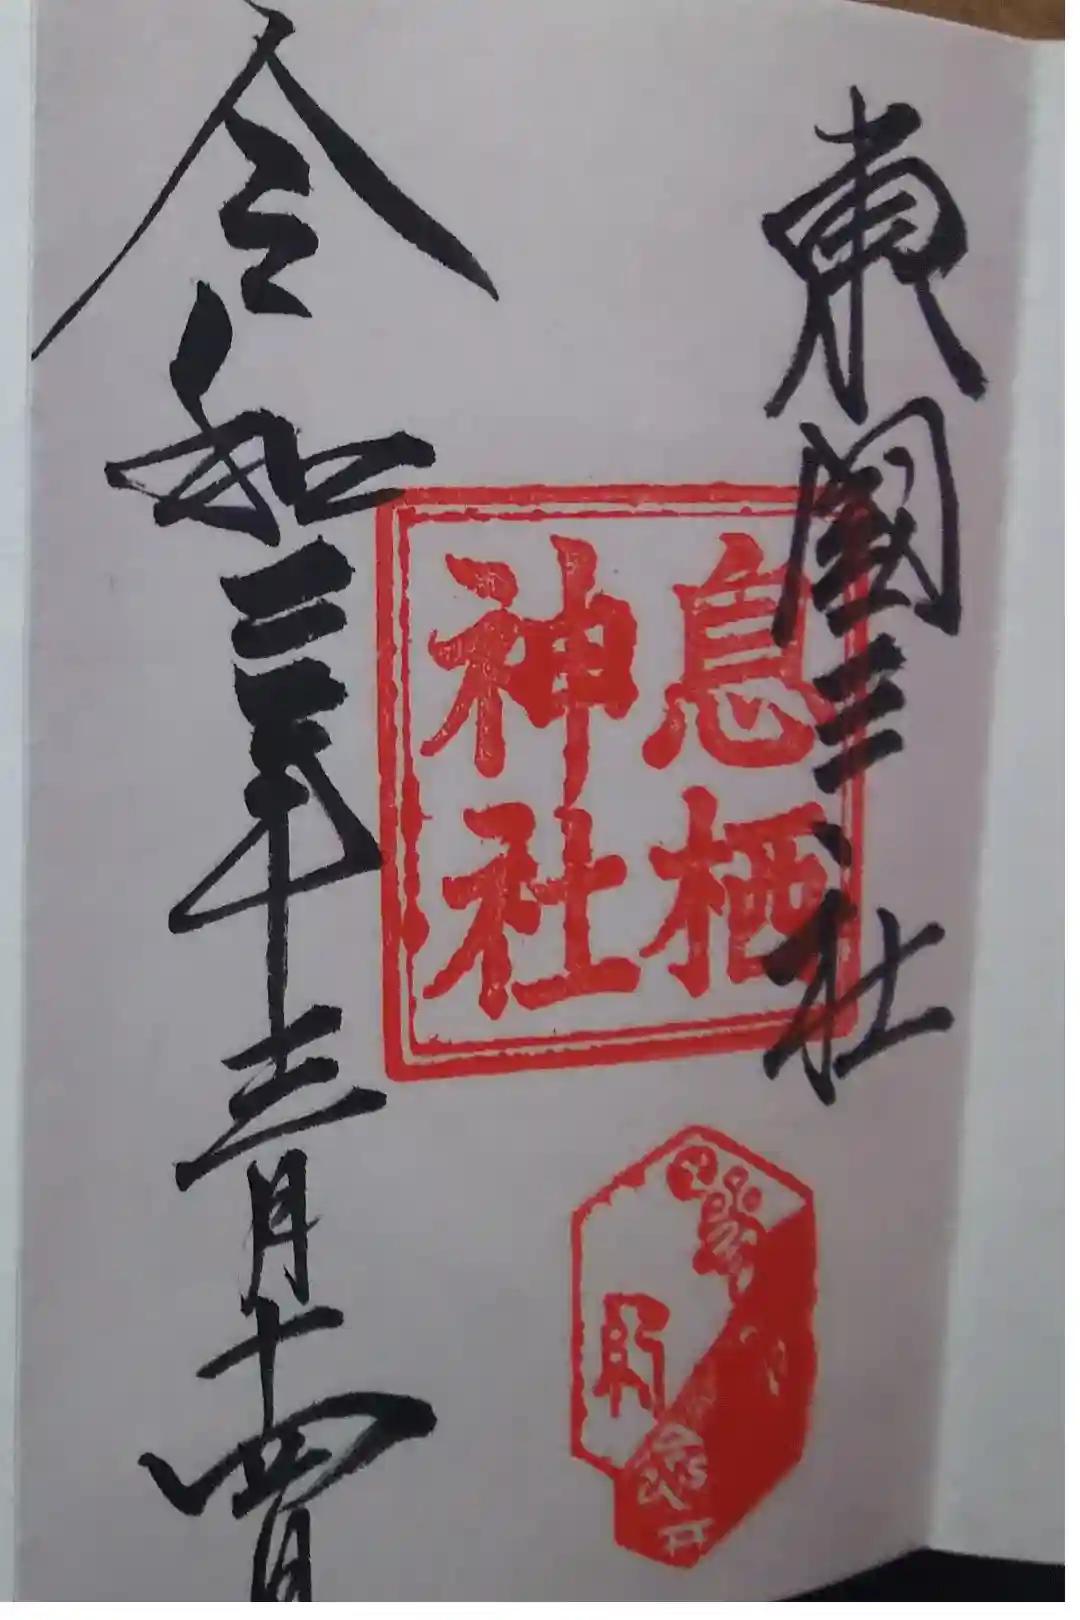 東國三社
息栖
神社
令和三年十二月十四日